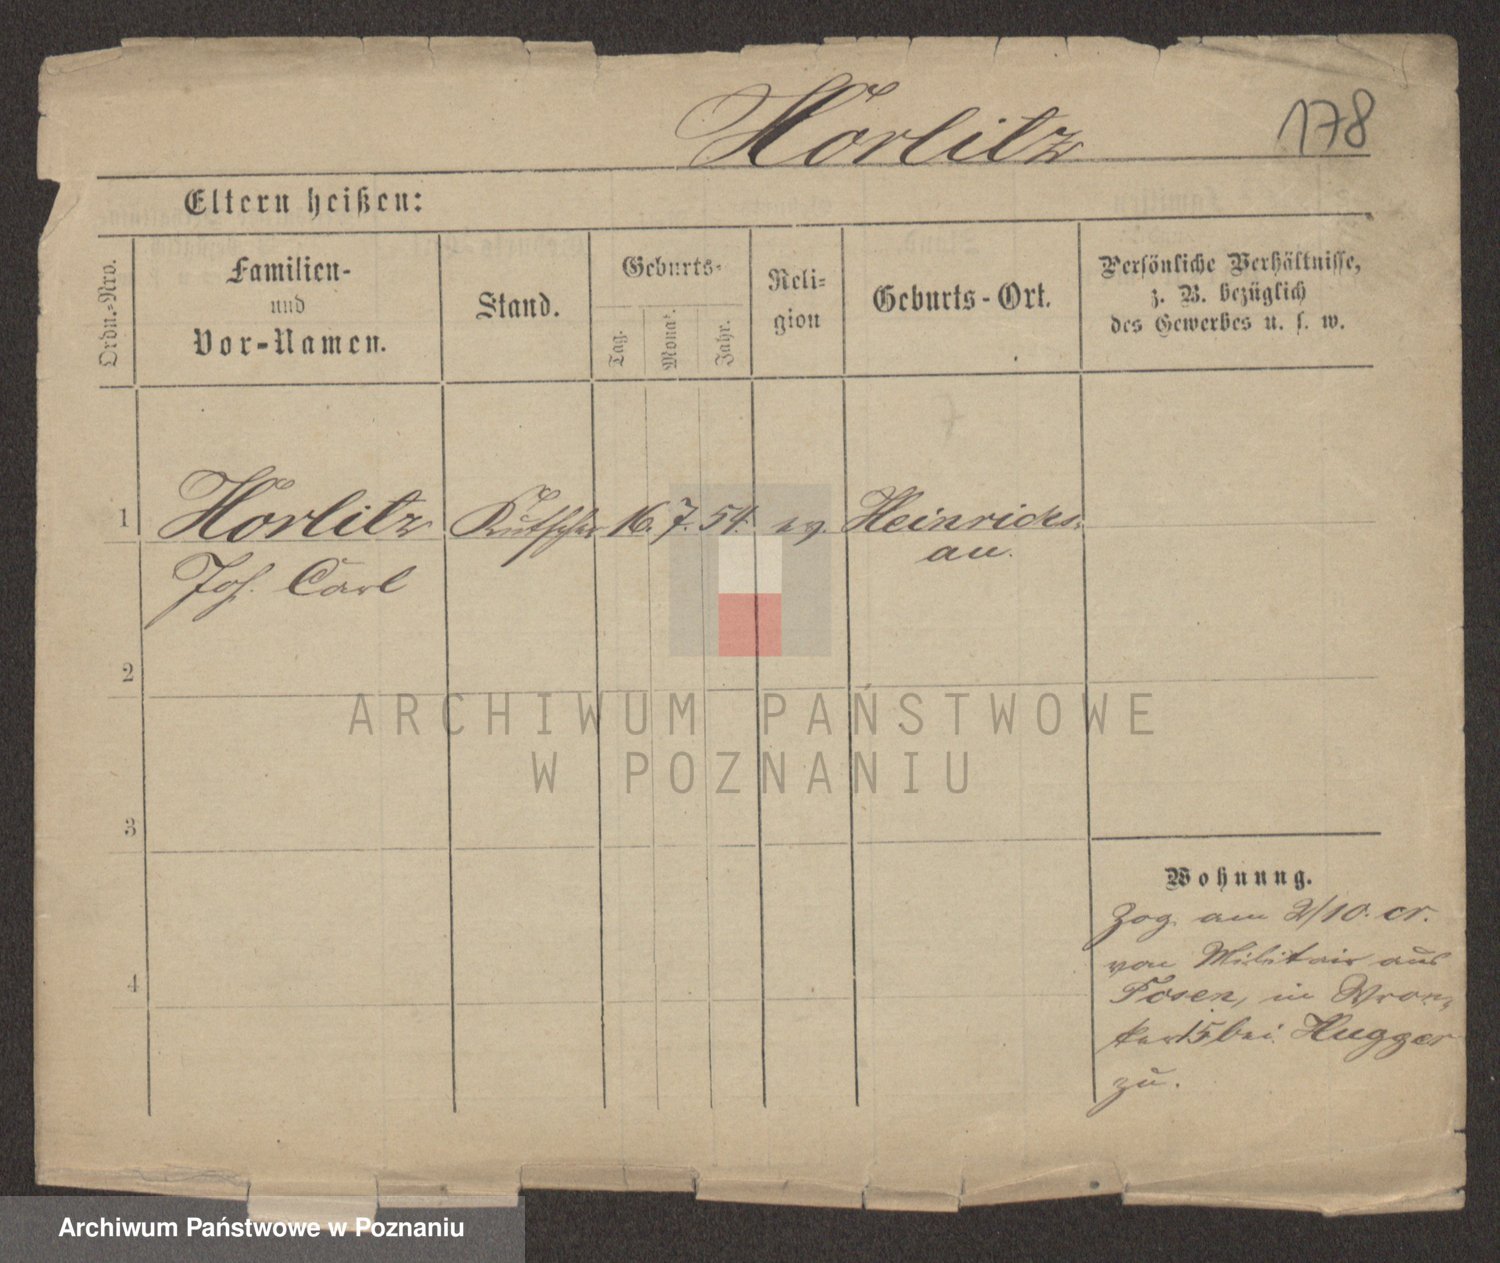 Hörlitz
178
Eltern heißen:
Ordn.-Nro.
Familien-
und
Vor-Namen.
Stand.
Geburts-
Tag.
Monat.
Jahr.
Reli-
gion
Geburts-Ort.
Persönliche Verhältnisse,
z. B. bezüglich
des Gewerbes u. s. w.
1 Hörlitz Kutscher 16. 7. 54. ev. Heinrichs-
au.
Joh. Carl
2
ARCHIWUM PAŃSTWOWE
W POZNANIU
3
4
Wohnung.
Zog am 2/10. cr.
von Militair aus
Posen, in Wron-
ker 15 bei Hugger
zu.
Archiwum Państwowe w Poznaniu